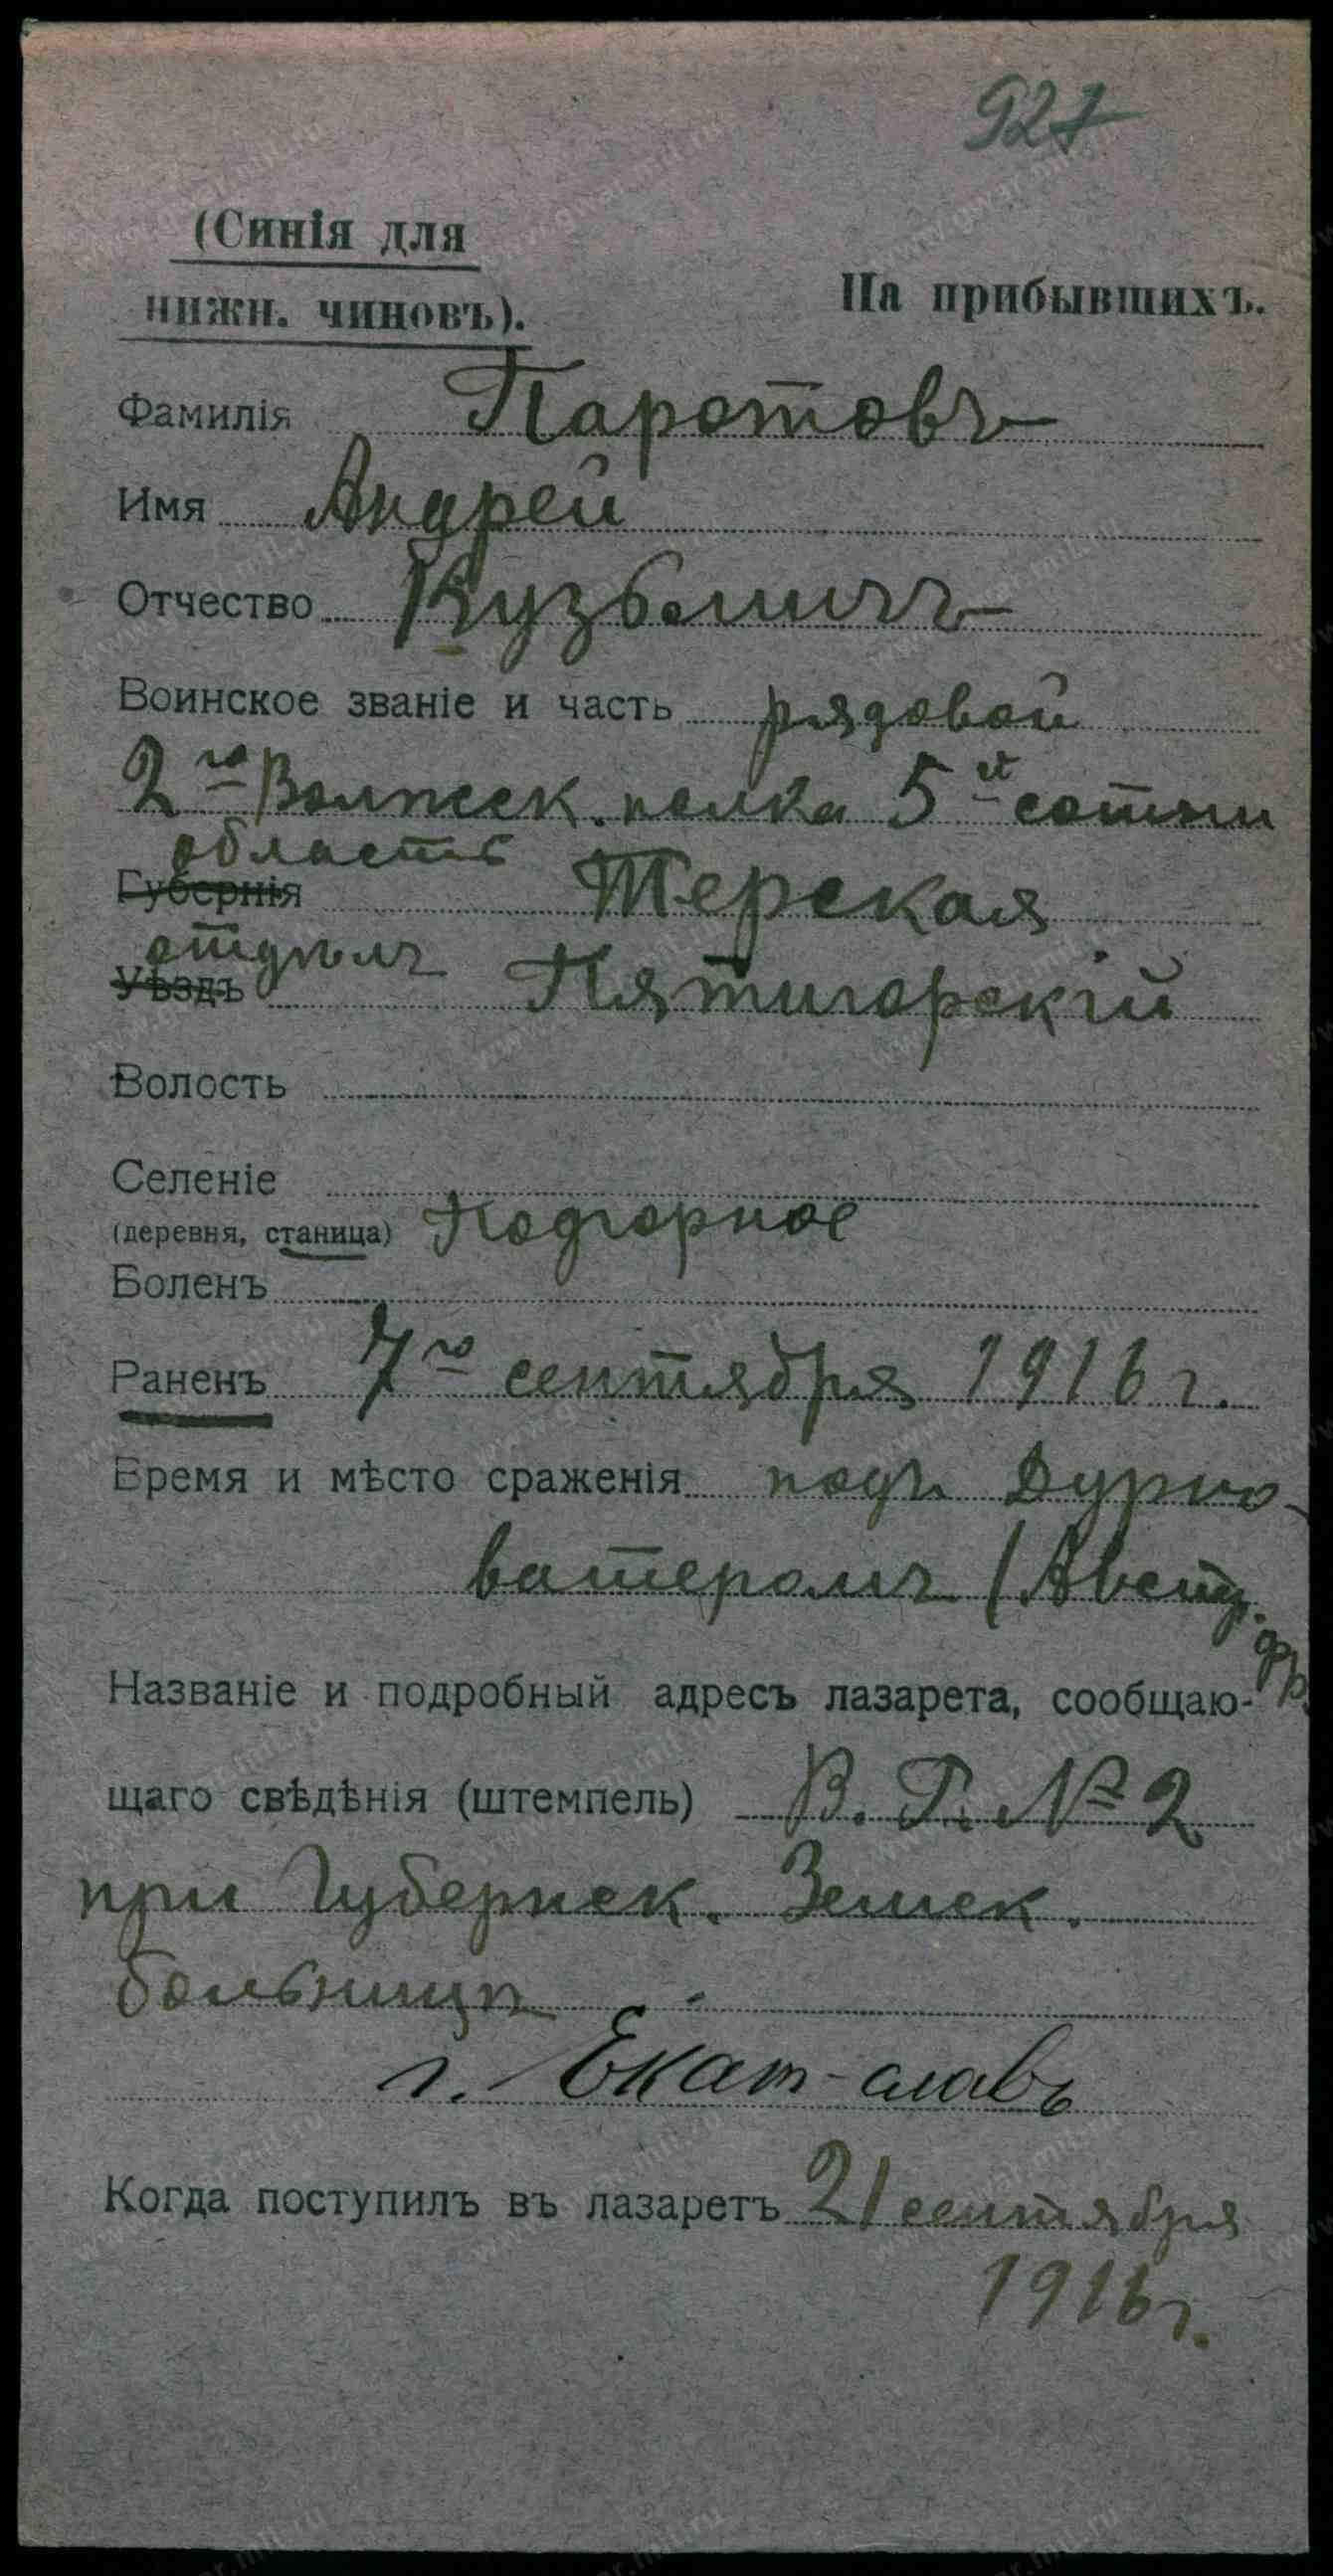 927
(Синія для
нижн. чиновъ).
На прибывшихъ.
Фамилія Паротовъ
Имя Андрей
Отчество Кузьмичъ
Воинское званіе и часть рядовой
2го Волжск. полка 5й сотни
область
Губернія Терская
отдѣлъ
Уѣздъ Пятигорскій
Волость
Селеніе
(деревня, станица) Подгорное
Боленъ
Раненъ 7го сентября 1916 г.
Время и мѣсто сраженія подъ Дурно-
ватеромъ (Австр.
фр.
Названіе и подробный адресъ лазарета, сообщаю-
щаго свѣдѣнія (штемпель) В. Г. № 2
при Губернск. Земск.
больницѣ
г. Екат-славъ
Когда поступилъ въ лазаретъ 21 сентября
1916 г.